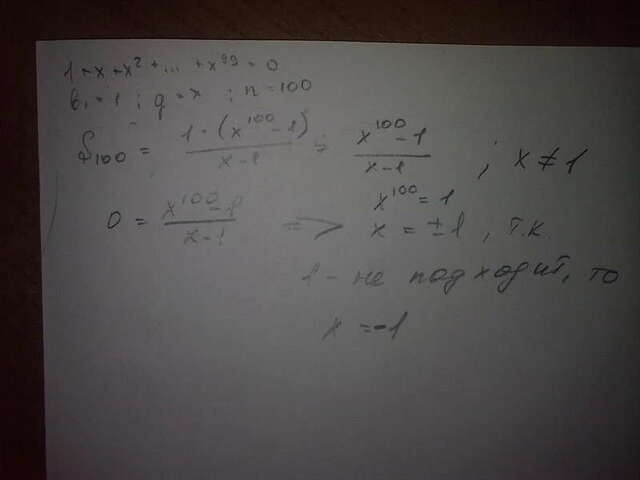 1 + x + x² + ... + x⁹⁹ = 0
b₁ = 1 ; q = x ; n = 100
S₁₀₀ = 1·(x¹⁰⁰ - 1) / x - 1 = x¹⁰⁰ - 1 / x - 1 ; x ≠ 1
0 = x¹⁰⁰ - 1 / x - 1 => x¹⁰⁰ = 1
x = ± 1, т.к.
1 - не подходит, то
x = -1